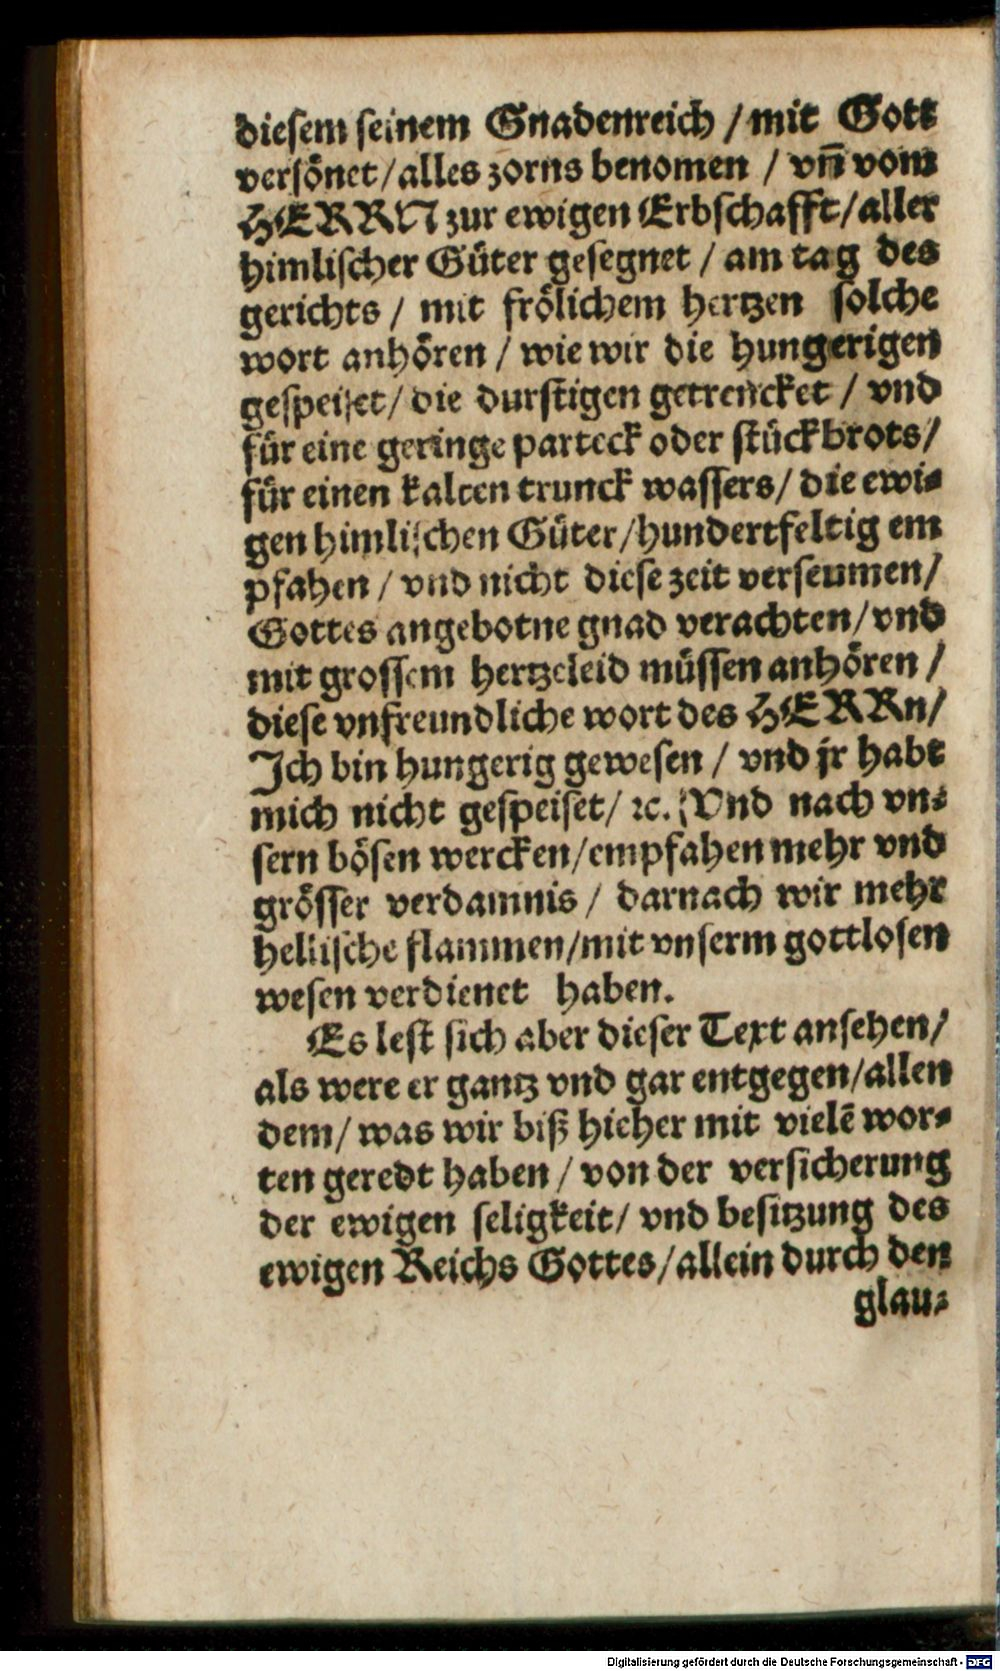 diesem seinem Gnadenreich / mit Gott
versönet / alles zorns benomen / vñ vom
HERRN zur ewigen Erbschafft / aller
himlischer Güter gesegnet / am tag des
gerichts / mit frölichem hertzen solche
wort anhören / wie wir die hungerigen
gespeiset / die durstigen getrencket / vnd
für eine geringe parteck oder stück brots /
für einen kalten trunck wassers / die ewi-
gen himlischen Güter / hundertfeltig em
pfahen / vnd nicht diese zeit verseumen /
Gottes angebotne gnad verachten / vnd
mit grossem hertzeleid müssen anhören /
diese vnfreundliche wort des HERRn /
Ich bin hungerig gewesen / vnd jr habt
mich nicht gespeiset / ꝛc. Vnd nach vn-
sern bösen wercken / empfahen mehr vnd
grösser verdamnis / darnach wir mehr
hellische flammen / mit vnserm gottlosen
wesen verdienet haben.
Es lest sich aber dieser Text ansehen /
als were er gantz vnd gar entgegen / allen
dem / was wir biß hieher mit vielē wor-
ten geredt haben / von der versicherung
der ewigen seligkeit / vnd besitzung des
ewigen Reichs Gottes / allein durch den
glau-
Digitalisierung gefördert durch die Deutsche Forschungsgemeinschaft - DFG